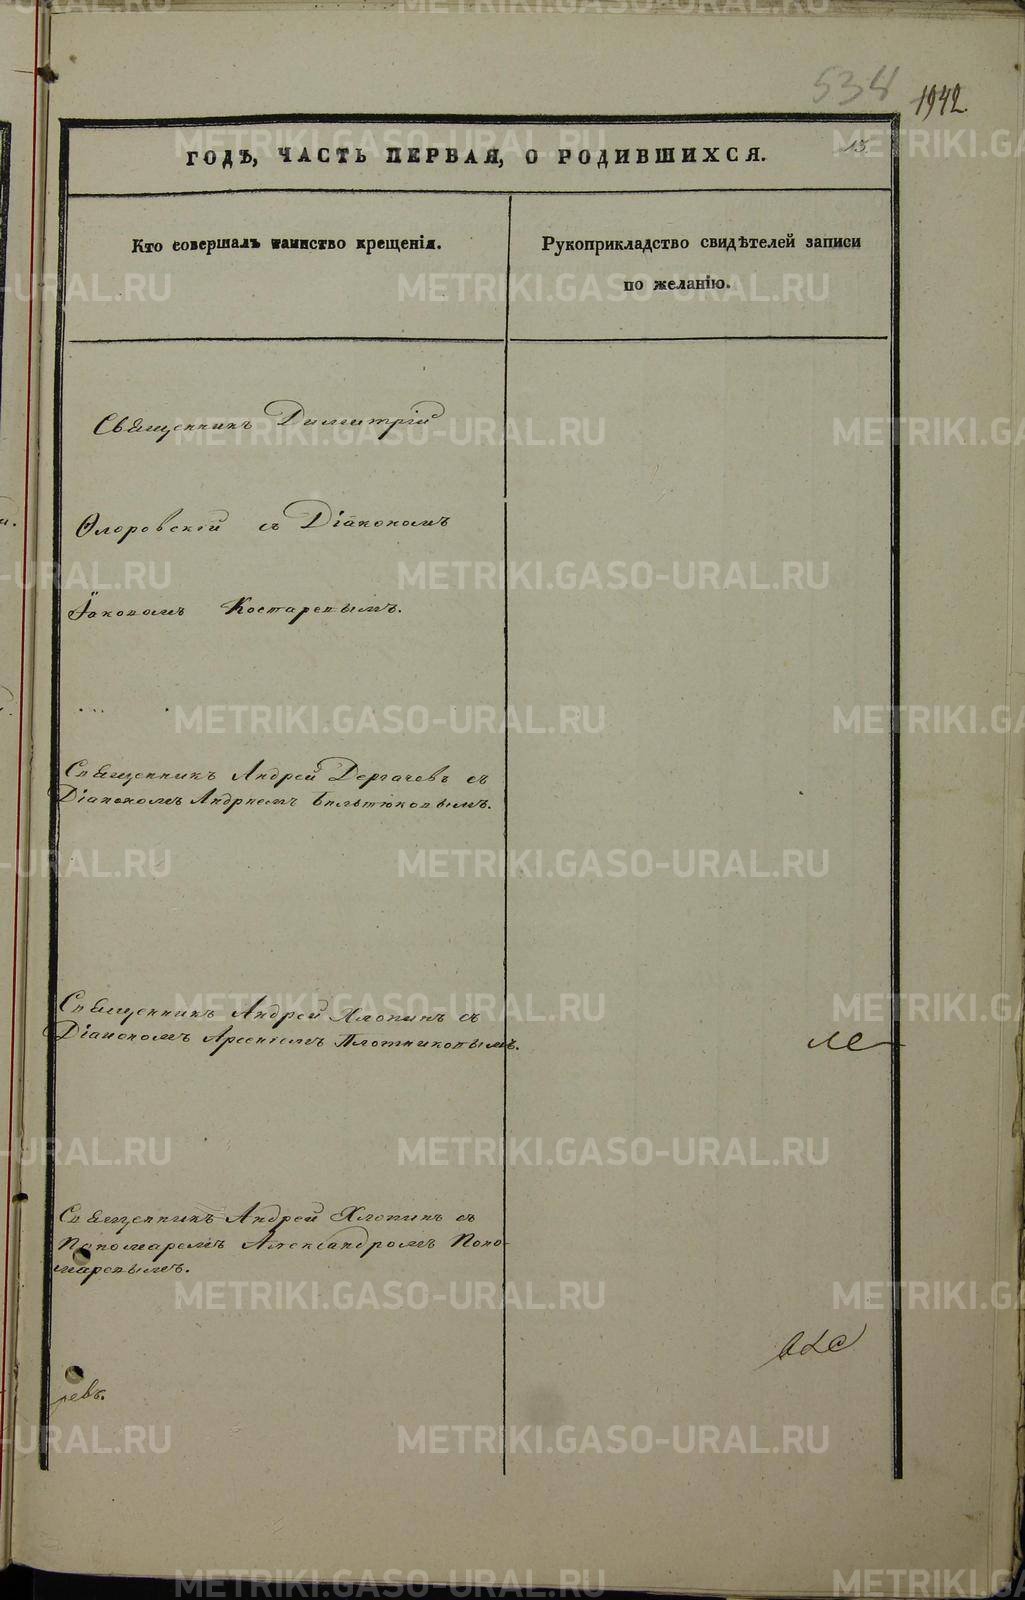 534 1942.
ГОДЪ, ЧАСТЬ ПЕРВАЯ, О РОДИВШИХСЯ. 15
Кто совершалъ таинство крещенія.
Рукоприкладство свидѣтелей записи
по желанію.
Священникъ Димитрій
Ѳлоровскій съ Діакономъ
Іаковомъ Костаревымъ.
Священникъ Андрей Дергачевъ съ
Діакономъ Андреемъ Бильтюковымъ.
Священникъ Андрей Хлопинъ съ
Діакономъ Арсеніемъ Плотниковымъ.
Священникъ Андрей Хлопинъ съ
Пономаремъ Александромъ Поно-
маревымъ.
ревъ.
METRIKI.GASO-URAL.RU